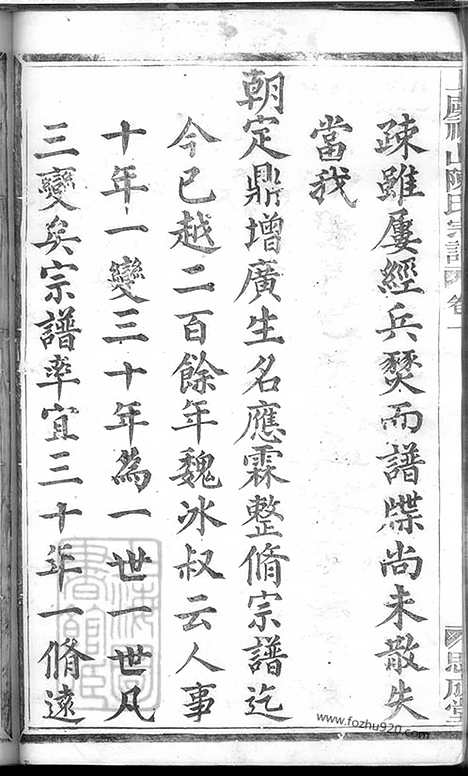 疎雖屢經兵燹而譜牒尚未散失
當我
朝定鼎增廣生名應霖整脩宗譜迄
今已越二百餘年魏冰叔云人事
十年一變三十年為一世一世凡
三變矣宗譜率宜三十年一脩遠
山陳氏宗譜 卷一
思成堂
www.fozhu920.com